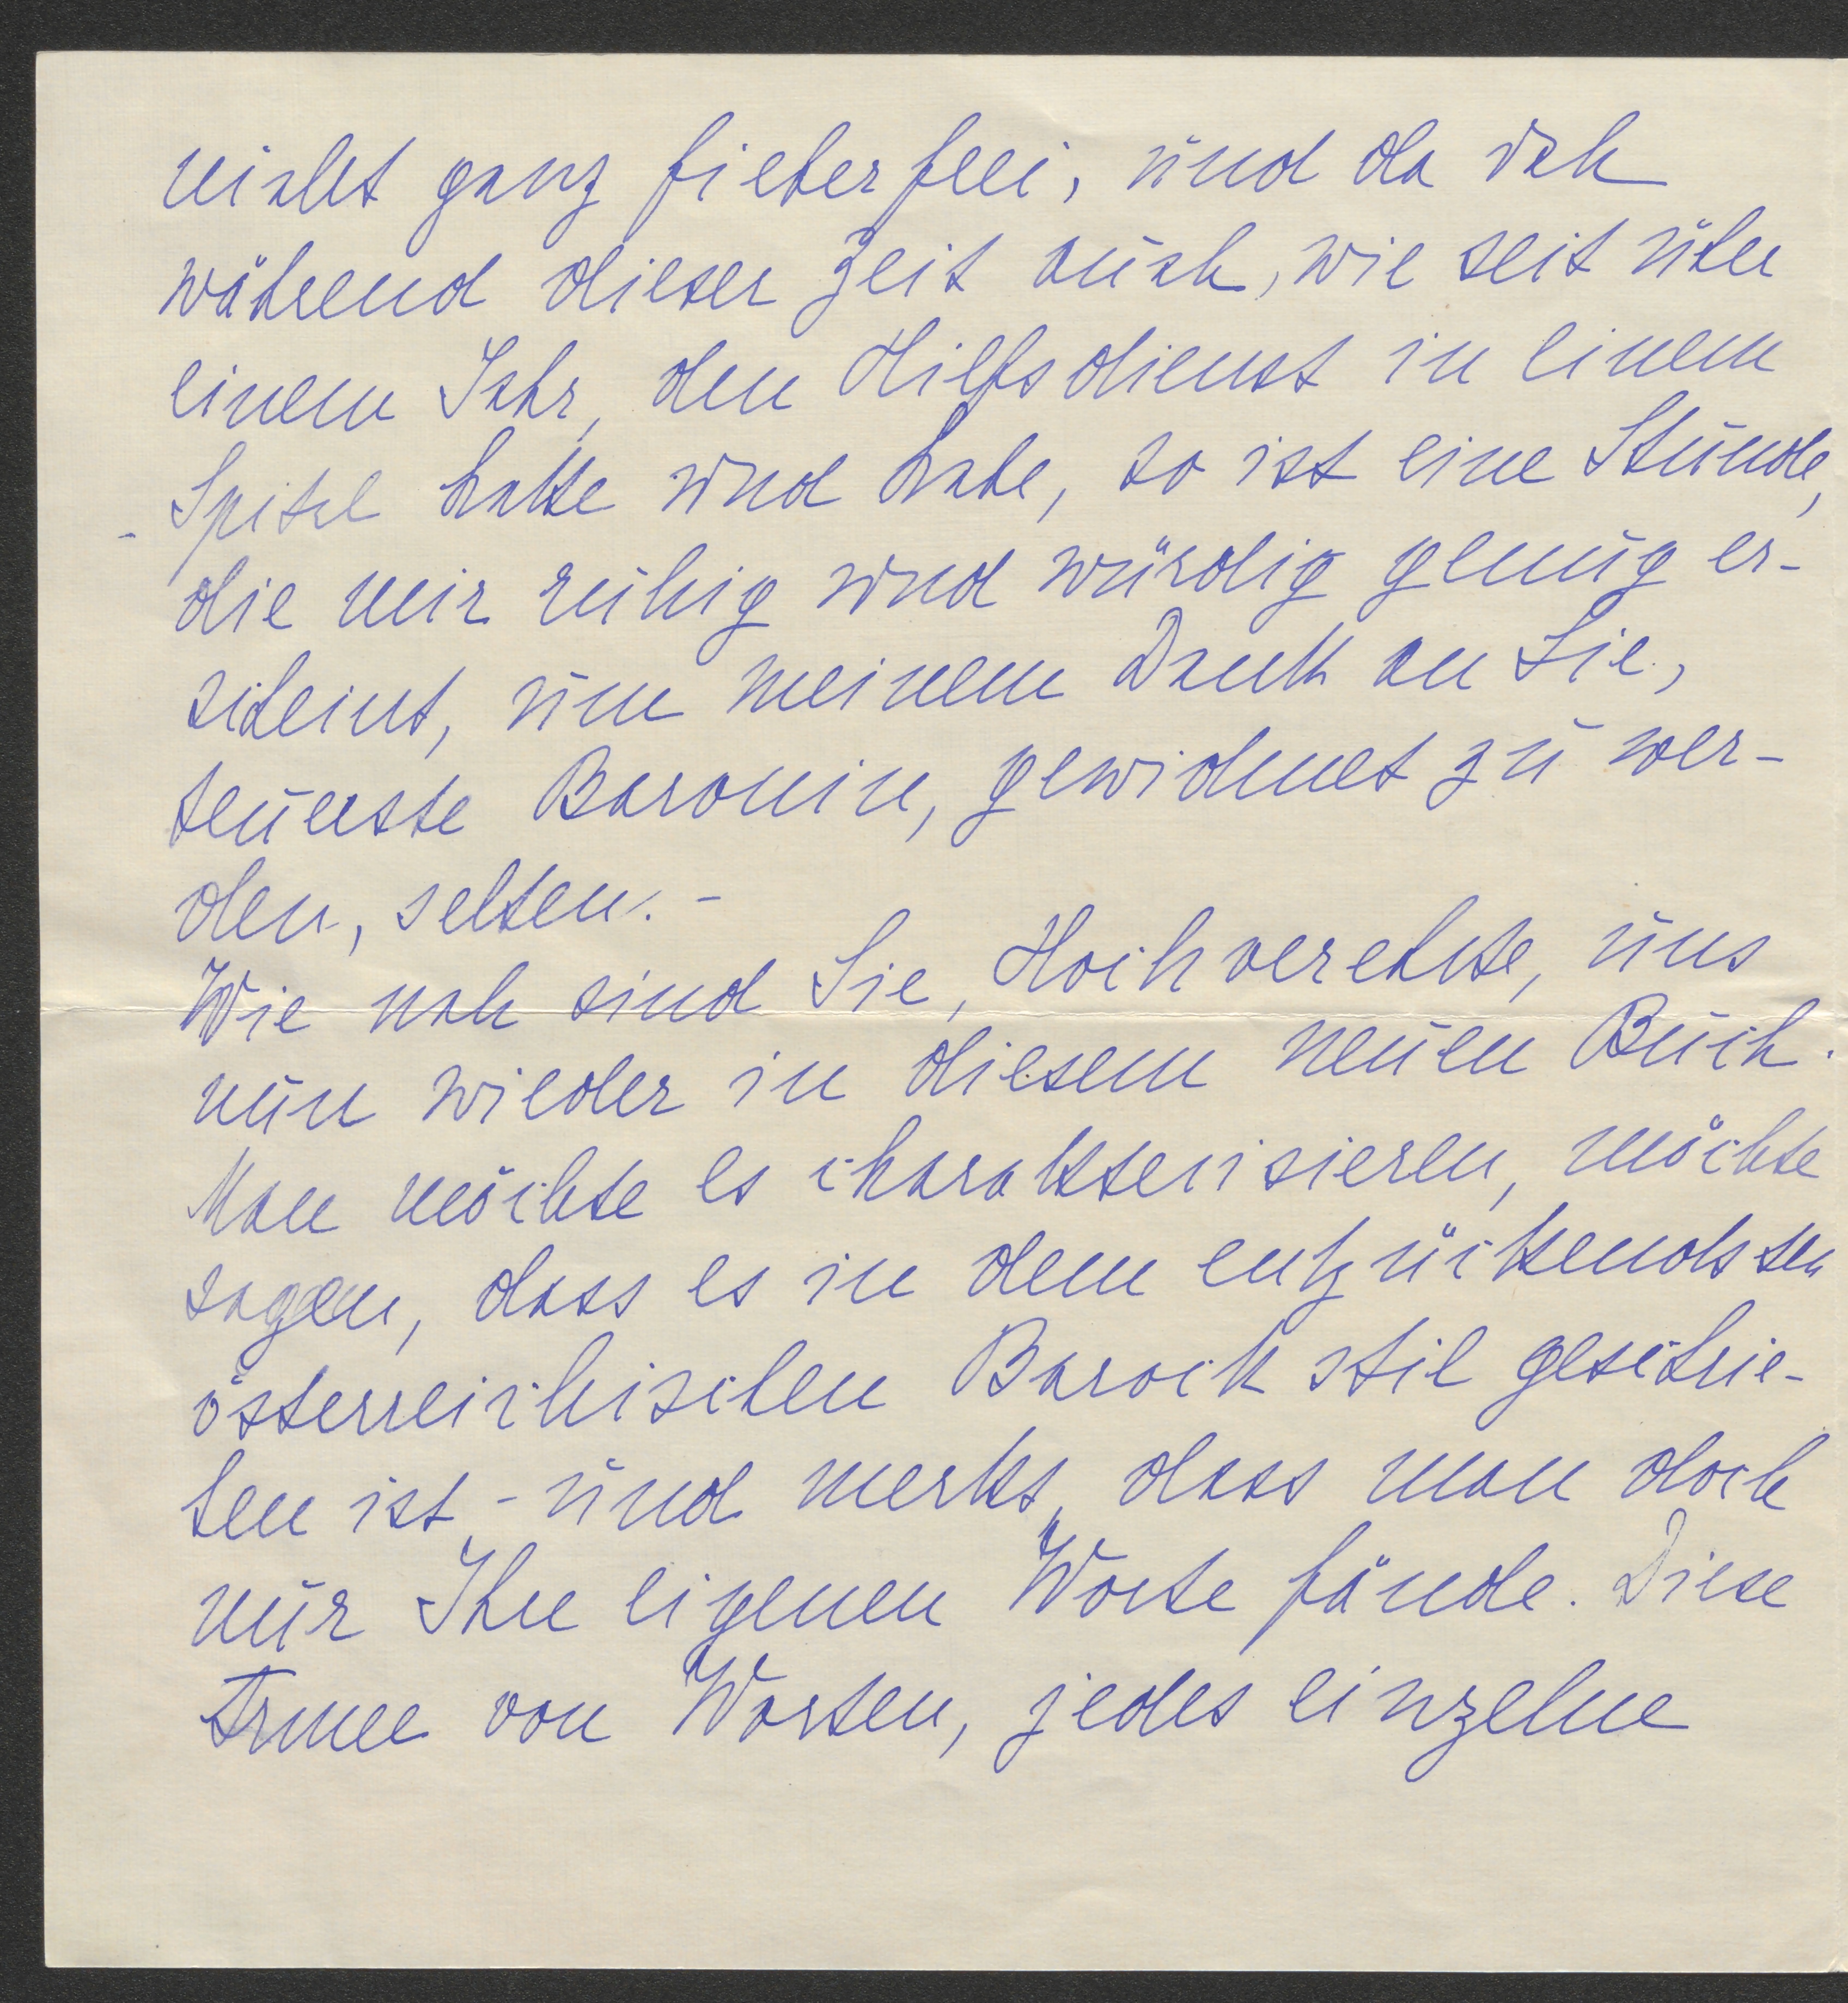 nicht ganz fieberfrei, und da ich
während dieser Zeit auch, wie seit über
einem Jahr, den Hilfsdienst in einem
Spital hatte und habe, so ist eine Stunde,
die mir ruhig und würdig genug er-
scheint, um meinem Dank an Sie,
teuerste Baronin, gewidmet zu wer-
den, selten. -
Wie nah sind Sie, Hochverehrte, uns
nun wieder in diesem neuen Buch.
Man möchte es charakterisieren, möchte
sagen, dass es in dem entzückendsten
österreichischen Barock stil geschrie-
ben ist - und merkt, dass man doch
nur Ihre eigenen Worte fände. Diese
Armee von Worten, jedes einzelne